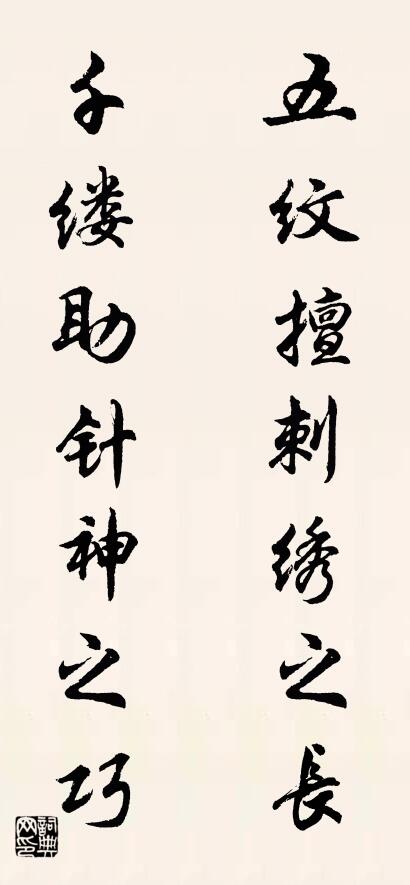 五纹擅刺绣之長
千缕助针神之巧
詞典网印